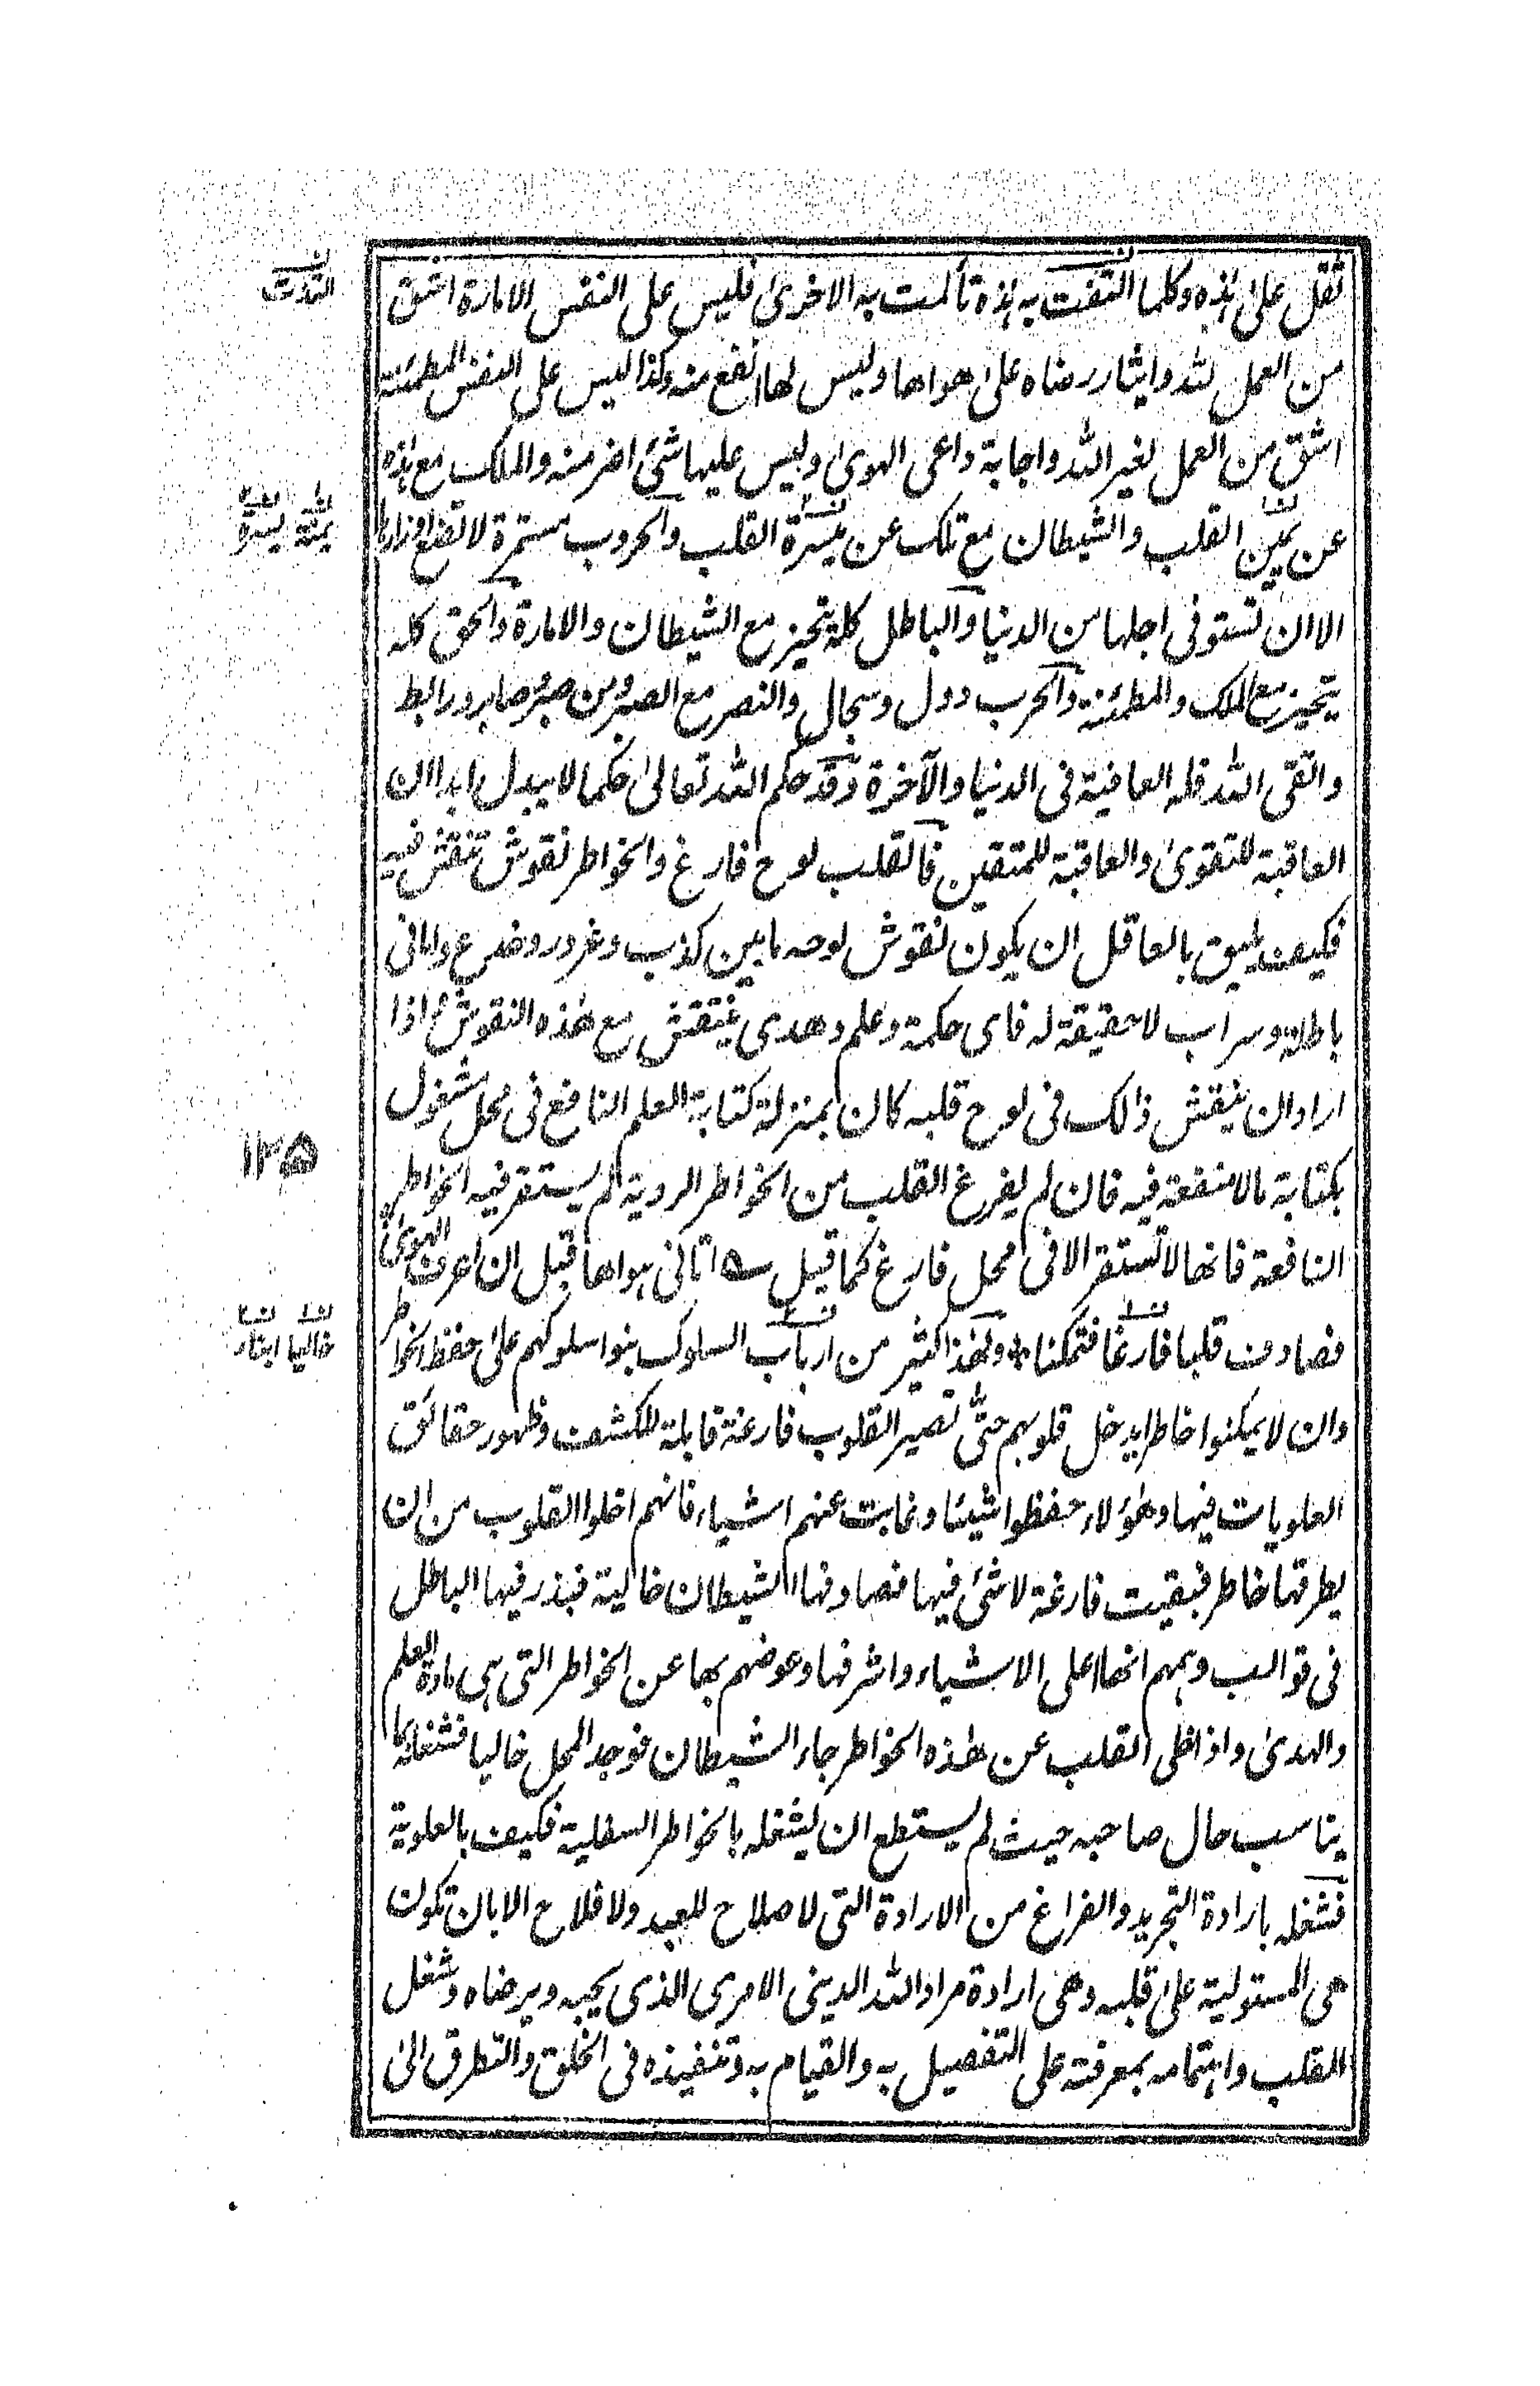 ثقل على هذه وكلما التفت به هذه تألمت به الاخرى فليس على النفس الامارة اشق
من العمل لله وايثار رضاه على هواها وليس لها انفع منه وكذا ليس على النفس المطمئنة
اشق من العمل لغير الله واجابة داعى الهوى وليس عليها شئ اضر منه والملك مع هذه
عن يمين القلب والشيطان مع تلك عن ميسرة القلب والحروب مستمرة لا تضع اوزارها
الا ان تستوفى اجلها من الدنيا والباطل كله يتحيز مع الشيطان والامارة والحق كله
يتحيز مع الملك والمطمئنة والحرب دول وسجال والنصر مع الصبر ومن صبر وصابر ورابط
واتقى الله فله العافية فى الدنيا والآخرة وقد حكم الله تعالى حكما لا يبدل ابدا ان
العاقبة للتقوى والعاقبة للمتقين فالقلب لوح فارغ والخواطر نقوش تنقش فيه
فكيف يليق بالعاقل ان يكون نقوش لوحه ما بين كذب وغرور وخدع وامانى
باطلة وسراب لا حقيقة له فاى حكمة وعلم وهدى ينتقش مع هذه النقوش واذا
اراد ان ينقش ذالك فى لوح قلبه كان بمنزلة كتابة العلم النافع فى محل مشغول
بكتابة ما لا منفعة فيه فان لم يفرغ القلب من الخواطر الردية لم يستقر فيه الخواطر
النافعة فانها لا تستقر الا فى محل فارغ كما قيل ؎ اتانى هواها قبل ان اعرف الهوى؞
فصادف قلبا فارغا فتمكنا؞ ولهذا كثير من ارباب السلوك بنوا سلوكهم على حفظ الخواطر
وان لا يمكنوا خاطرا يدخل قلوبهم حتى تصير القلوب فارغة قابلة للكشف وظهور حقائق
العلويات فيها وهؤلاء حفظوا شيئا وغابت عنهم اشياء فانهم اخلوا القلوب من ان
يطرقها خاطر فبقيت فارغة لا شئ فيها فصادفها الشيطان خالية فبذر فيها الباطل
فى قوالب وهمهم انها اعلى الاشياء واشرفها وعوضهم بها عن الخواطر التى هى مادة العلم
والهدى واذا خلى القلب عن هذه الخواطر جاء الشيطان فوجد المحل خاليا فشغله بما
يناسب حال صاحبه حيث لم يستطع ان يشغله بالخواطر السفلية فكيف بالعلوية
فشغله بارادة التجريد والفراغ من الارادة التى لا صلاح للعبد ولا فلاح الا بان تكون
هى المستولية على قلبه وهى ارادة مراد الله الدينى الامرى الذى يحبه ويرضاه وشغل
القلب واهتمامه بمعرفته على التفصيل به والقيام به وتنفيذه فى الخلق والتطرق الى
يمنة يسرة
١٢٥
خاليا